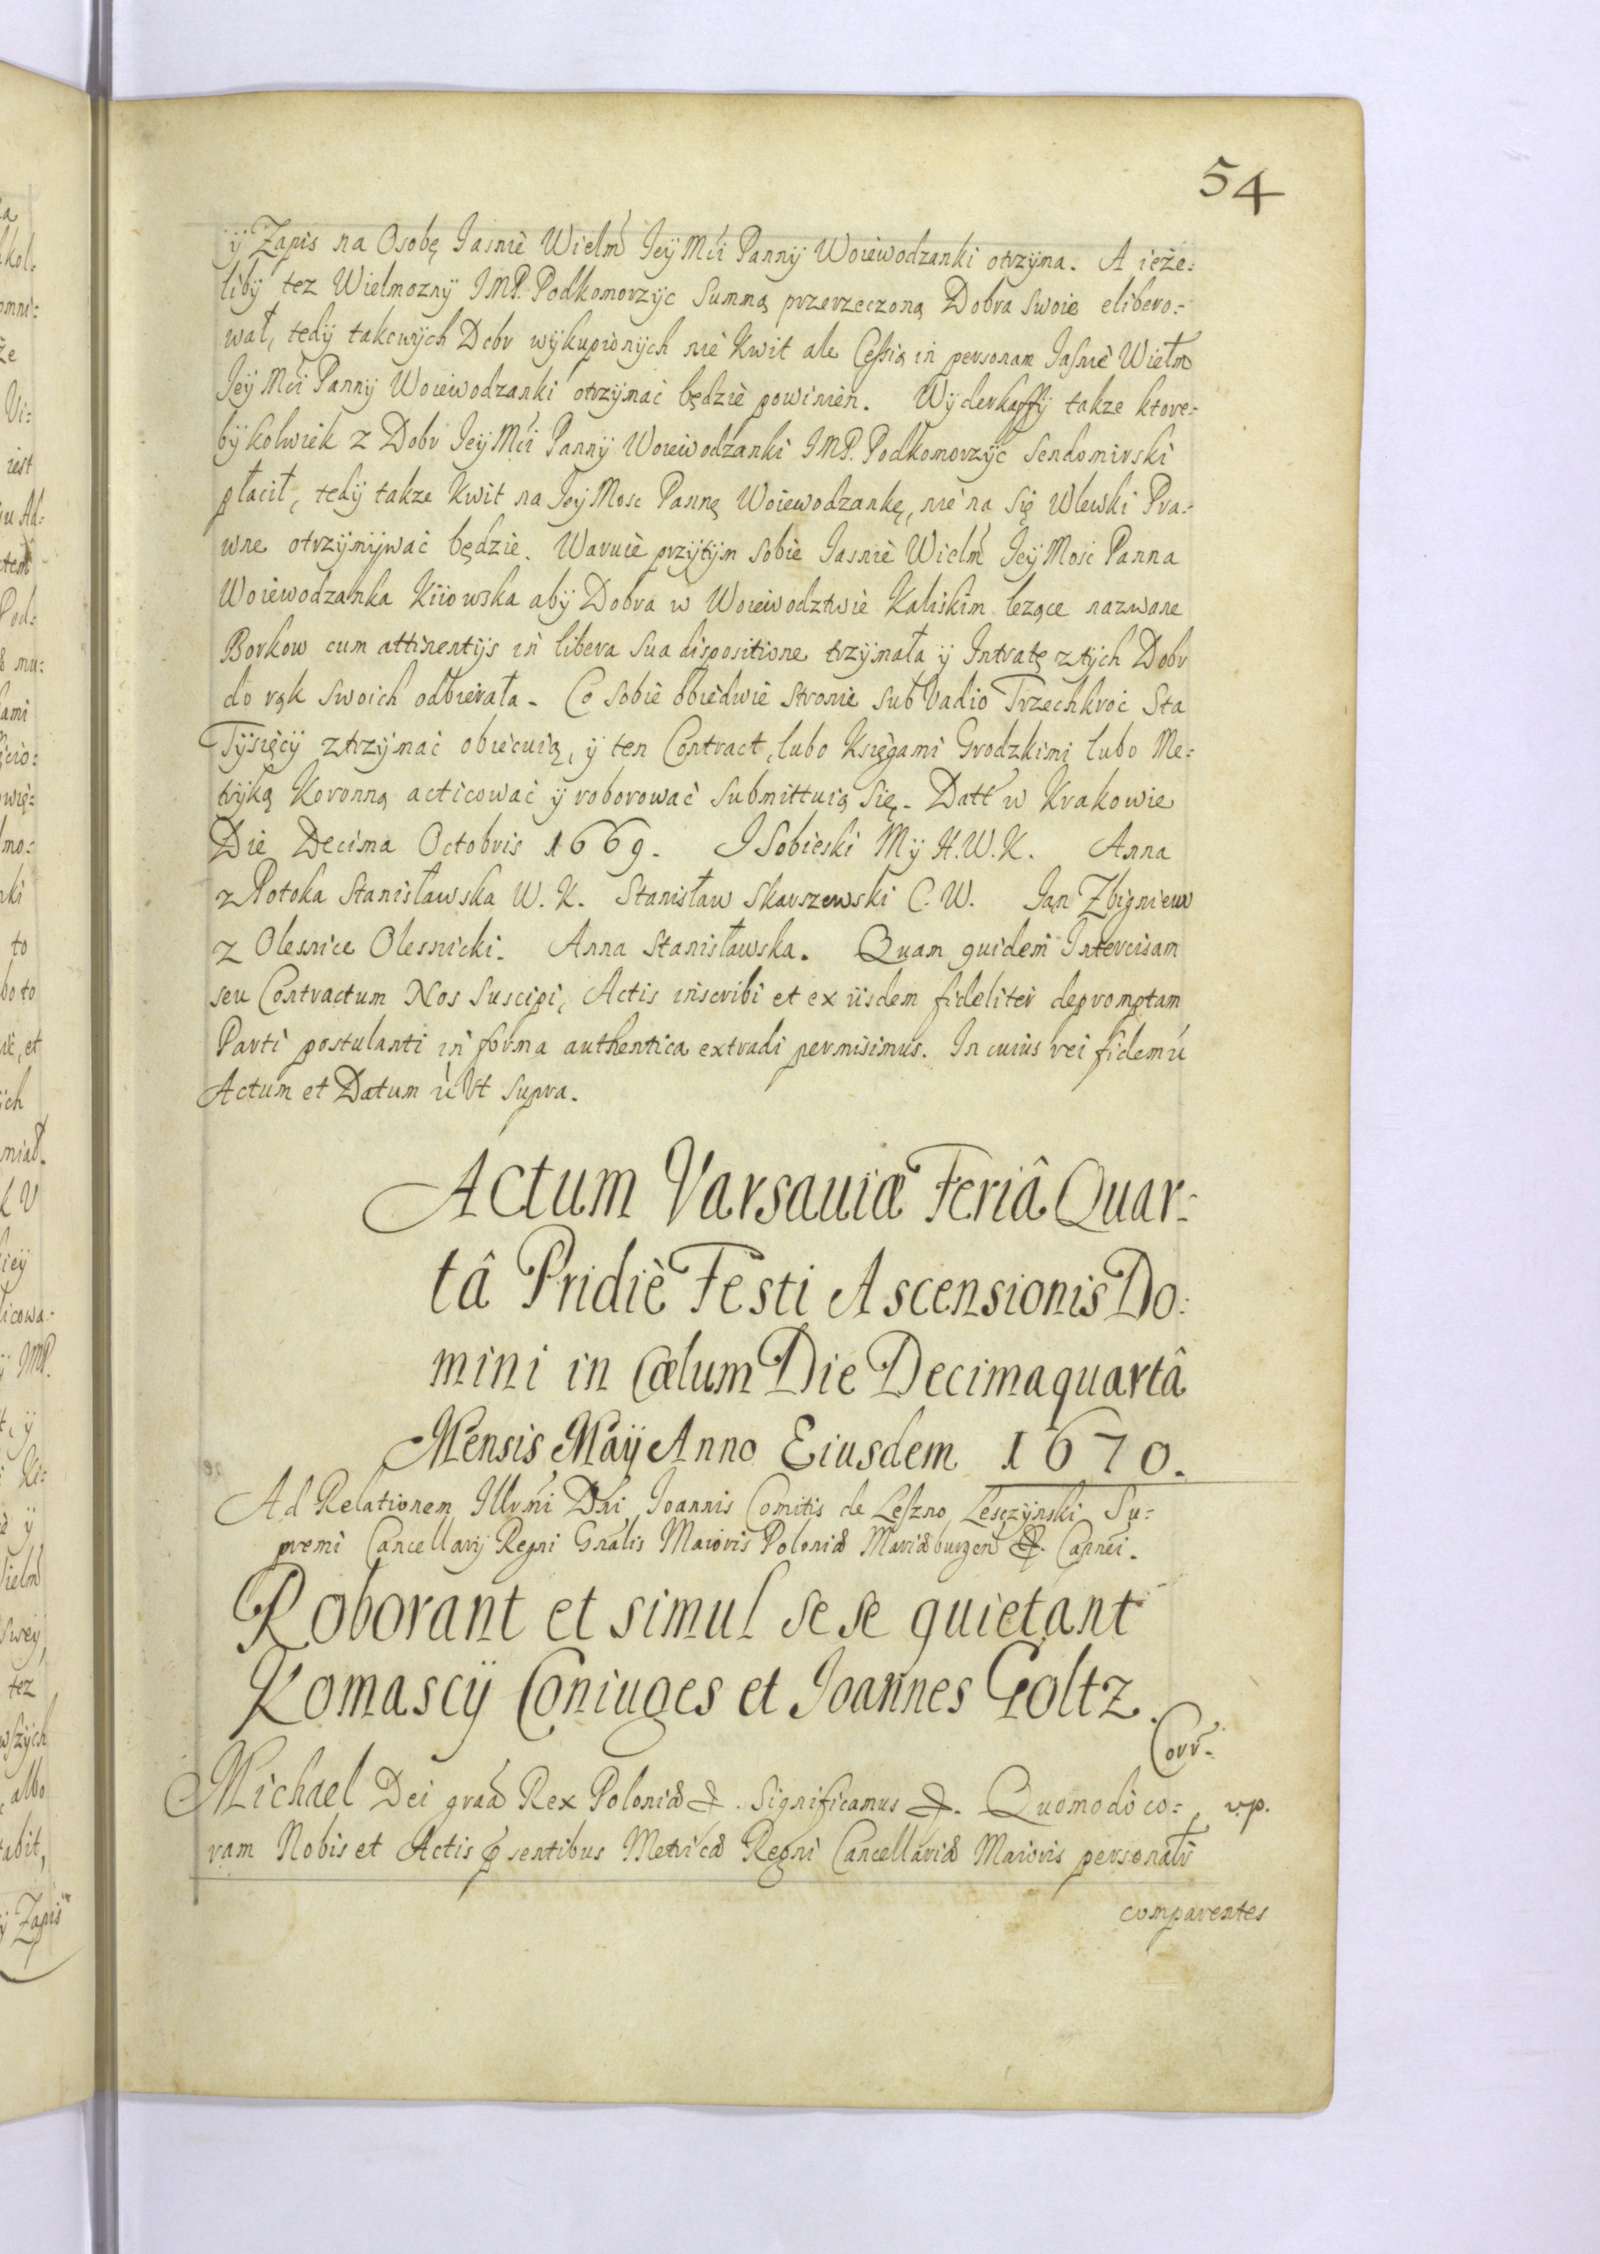 54
ÿ Zapis na Osobę Iasnie Wielm̃ Ieÿ Mći Pannÿ Woiewodzanki otrzÿma. A ieże:
libÿ tez Wielmoznÿ IMP. Podkomorzÿc Summą przerzeczoną Dobra swoie elibero:
wał, tedÿ takowÿch Dobr wÿkupionÿch nie kwit ale Cessią in personam Iasnie Wielm̃
Ieÿ Mći Pannÿ Woiewodzanki otrzÿmać będzie powinien. Wÿderkaffÿ takze ktore:
bÿkolwiek z Dobr Ieÿ Mći Pannÿ Woiewodzanki IMP. Podkomorzÿc Sendomirski
płacił, tedÿ takze kwit na Ieÿ Mosc Pannę Woiewodzankę, nie na się Wlewki Pra:
wne otrzÿmÿwać będzie. Waruie przÿtÿm sobie Iasnie Wielm̃ Ieÿ Mosc Panna
Woiewodzanka Kiiowska abÿ Dobra w Woiewodztwie Kaliskim lezące nazwane
Borkow cum attinentijs in libera sua dispositione trzÿmała ÿ Intratę z tÿch Dobr
do rąk swoich odbierała. Co sobie obiedwie stronie sub Vadio Trzechkroć Sta
Tÿsięcÿ ztrzÿmać obiecuią, ÿ ten Contract, lubo Księgami Grodzkimi lubo Me:
trÿką Koronną acticować ÿ roborować submittuią się. Datt w Krakowie
Die Decima Octobris 1669. I Sobieski Mÿ H.W.K. Anna
z Potoka Stanisławska W.K. Stanisław Skarszewski C.W. Ian Zbigniew
z Olesnice Olesnicki. Anna Stanisławska. Quam quidem Intercisam
seu Contractum Nos suscipi, Actis inscribi et ex iisdem fideliter depromptam
Parti postulanti in forma authentica extradi permisimus. In cuius rei fidem ú
Actum et Datum ú Vt supra.
Actum Varsauiæ Feriâ Quar:
tâ Pridiè Festi Ascensionis Do:
mini in Cœlum Die Decimaquartâ
Mensis Maÿ Anno Eiusdem 1670.
Ad Relationem Illṽmi Dñi Ioannis Comitis de Leszno Lesczÿnski Su:
premi Cancellarÿ Regni Gñalis Maioris Poloniæ Mariæburgeñ &. Capnei.
Roborant et simul sese quietant
Komascÿ Coniuges et Ioannes Goltz.
Corr.
Michael Dei graã Rex Poloniæ &. Significamus &. Quomodo co:
v.p.
ram Nobis et Actis p̱sentibus Metricæ Regni Cancellariæ Maioris personalr̃
comparentes